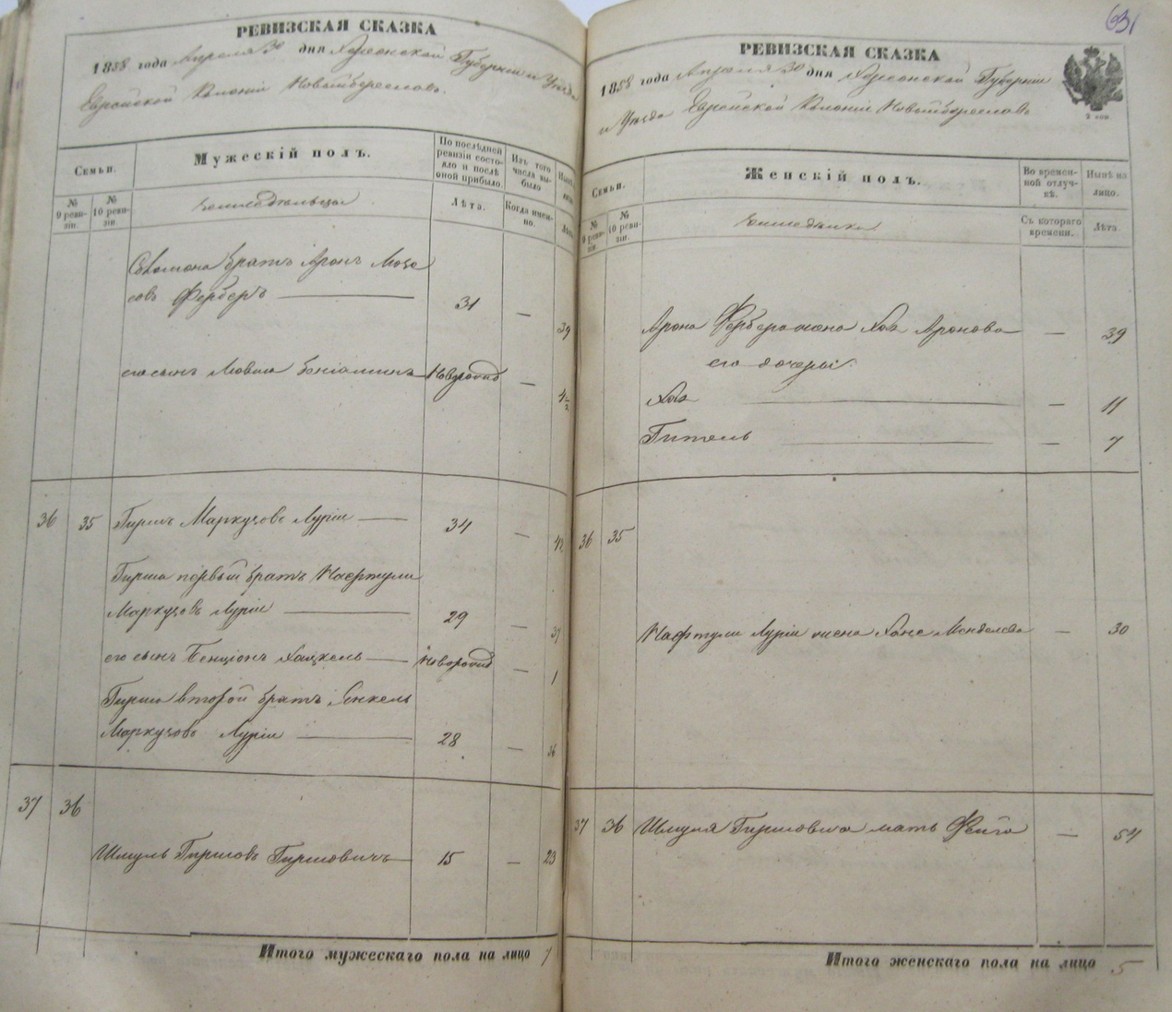 РЕВИЗСКАЯ СКАЗКА
1858 года Апреля 30 дня Херсонской Губерніи и Уезда
Еврейской Колоніи Новыйбереславъ.
Семьи.
Мужескій полъ.
По послѣдней ревизіи состояло и послѣ оной прибыло.
Изъ того числа выбыло
№ 9 ревизіи.
№ 10 ревизіи.
Земледѣльцы
Лѣта.
Когда именно.
Соломона братъ Аронъ Мовше
овъ Ферберъ
31
—
39
его сынъ Беніаминъ
Новорожд
—
4½
36
35
Гиршъ Маркусовъ Лурiи
34
—
42
Гирша первый братъ Нафтули
Маркусовъ Лурiи
29
—
37
его сынъ Бенціонъ Хацкель
Новорожд
—
1
Гирша второй братъ Янкель
Маркусовъ Лурiи
28
—
36
37
36
Шмуль Гиршовъ Гиршовичъ
15
—
23
Итого мужескаго пола на лицо 7
631
РЕВИЗСКАЯ СКАЗКА
1858 года Апреля 30 дня Херсонской Губерніи
и Уезда Еврейской Колоніи Новыйбереславъ
Семьи.
Женскій полъ.
Во временной отлучкѣ.
Нынѣ на лицо.
№ 9 ревизіи.
№ 10 ревизіи.
Съ котораго времени.
Лѣта.
Арона Фербера жена Хая Аронова
—
39
его дочери:
Хая
—
11
Гитель
—
7
36
35
Нафтули Лурiи жена Хане Менделева
—
30
37
36
Шмуля Гиршовича мать Фейга
—
54
Итого женскаго пола на лицо 5